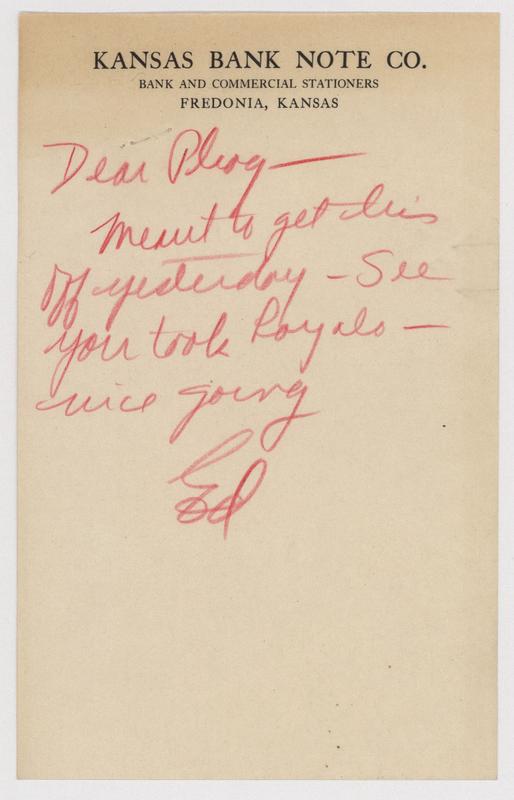 KANSAS BANK NOTE CO.
BANK AND COMMERCIAL STATIONERS
FREDONIA, KANSAS
Dear Plog —
Meant to get this
off yesterday — See
you took Royals —
nice going
Ed